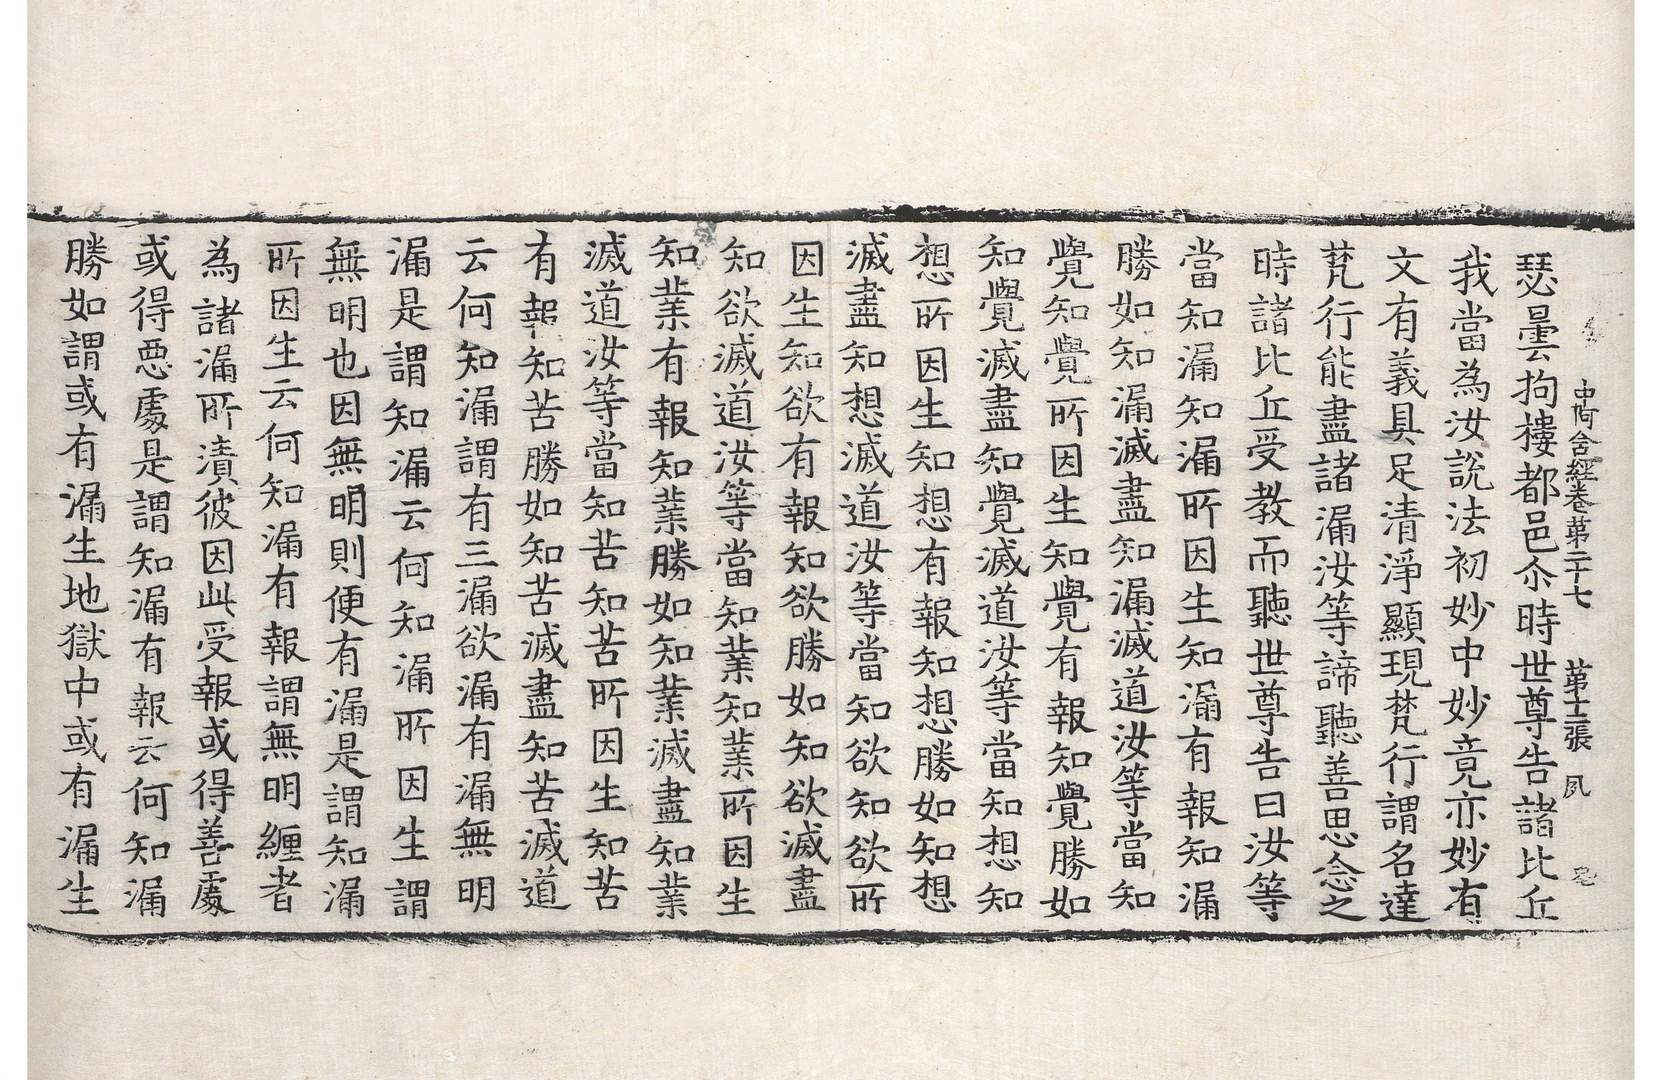 中阿含經卷第二十七 第十二張 夙
瑟曇拘樓都邑尒時世尊告諸比丘
我當為汝說法初妙中妙竟亦妙有
文有義具足清淨顯現梵行謂名達
梵行能盡諸漏汝等諦聽善思念之
時諸比丘受教而聽世尊告曰汝等
當知漏知漏所因生知漏有報知漏
勝如知漏滅盡知漏滅道汝等當知
覺知覺所因生知覺有報知覺勝如
知覺滅盡知覺滅道汝等當知想知
想所因生知想有報知想勝如知想
滅盡知想滅道汝等當知欲知欲所
因生知欲有報知欲勝如知欲滅盡
知欲滅道汝等當知業知業所因生
知業有報知業勝如知業滅盡知業
滅道汝等當知苦知苦所因生知苦
有報知苦勝如知苦滅盡知苦滅道
云何知漏謂有三漏欲漏有漏無明
漏是謂知漏云何知漏所因生謂
無明也因無明則便有漏是謂知漏
所因生云何知漏有報謂無明纏者
為諸漏所漬彼因此受報或得善處
或得悪處是謂知漏有報云何知漏
勝如謂或有漏生地獄中或有漏生